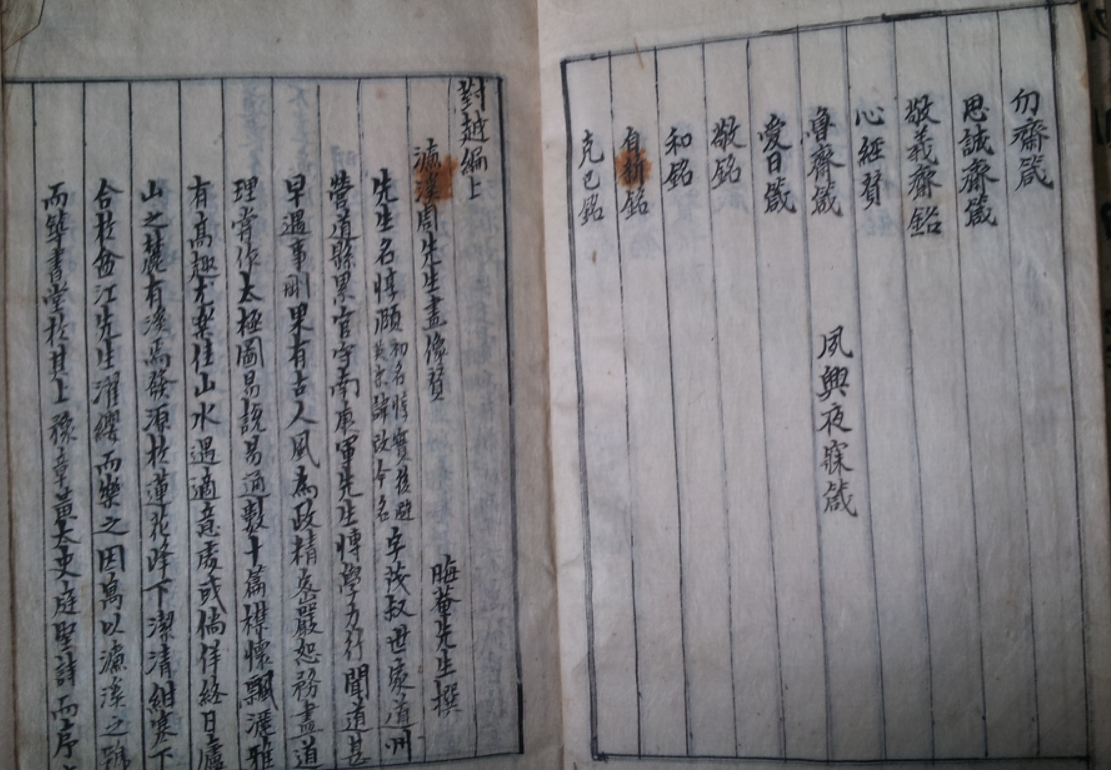 勿齋箴
思誠齋箴
敬義齋銘
心經贊
魯齋箴 夙興夜寐箴
愛日箴
敬銘
和銘
自新銘
克己銘
對越編上
濂溪周先生畫像贊 晦菴先生撰
先生名惇頤初名惇實後避英宗諱改今名字茂叔世家道州
營道縣累官守南康軍先生博學力行聞道甚
早遇事剛果有古人風為政精密嚴恕務盡道
理嘗作太極圖易說易通數十篇襟懷飄灑雅
有高趣尤樂佳山水遇適意處或倘佯終日廬
山之麓有溪焉發源於蓮花峰下潔清紺寒下
合於湓江先生濯纓而樂之因寓以濂溪之號
而築書堂於其上豫章黃太史庭堅詩而序